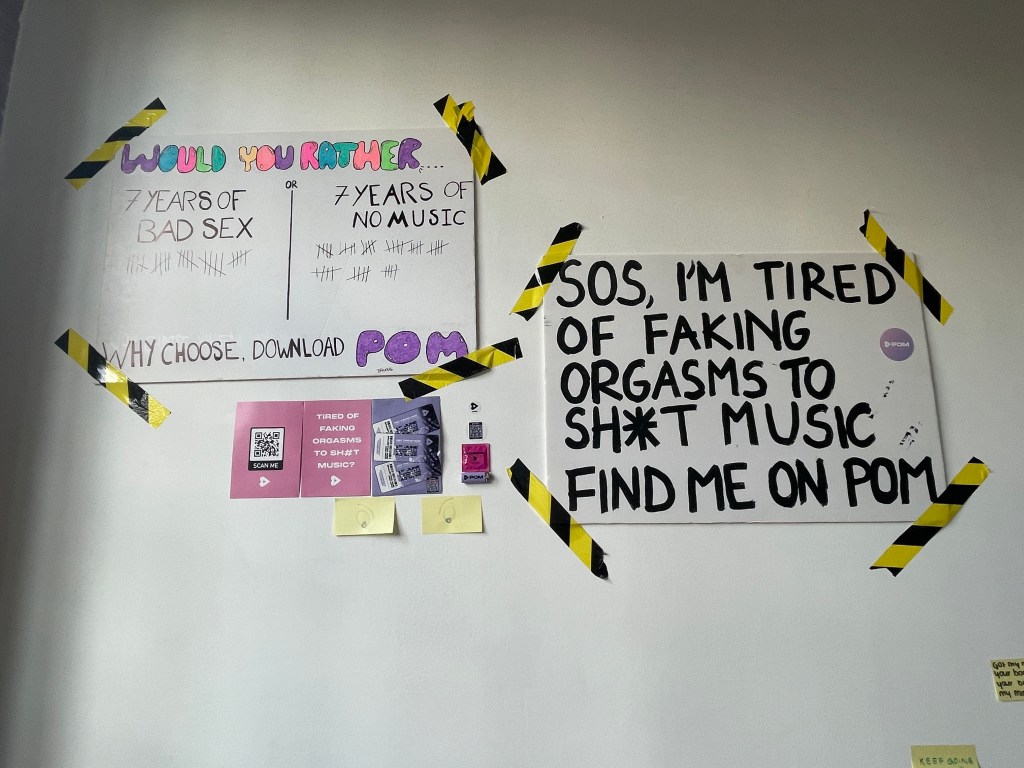 WOULD YOU RATHER....
7 YEARS OF
BAD SEX
OR
7 YEARS OF
NO MUSIC
WHY CHOOSE, DOWNLOAD POM
SCAN ME
TIRED OF
FAKING
ORGASMS
TO SH#T
MUSIC?
POM
SOS, I'M TIRED
OF FAKING
ORGASMS TO
SH*T MUSIC
FIND ME ON POM
POM
Got my
your
your
my
KEEP GOING